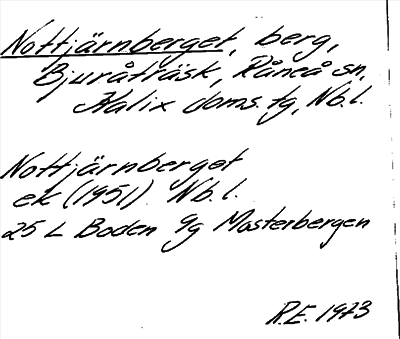 Nottjärnberget, berg,
Bjuråträsk, Råneå sn,
Kalix doms. tg, Nb.l.
Nottjärnberget
ek (1951) Nb.l.
25 L Boden 9g Mosterbergen
R.E. 1973